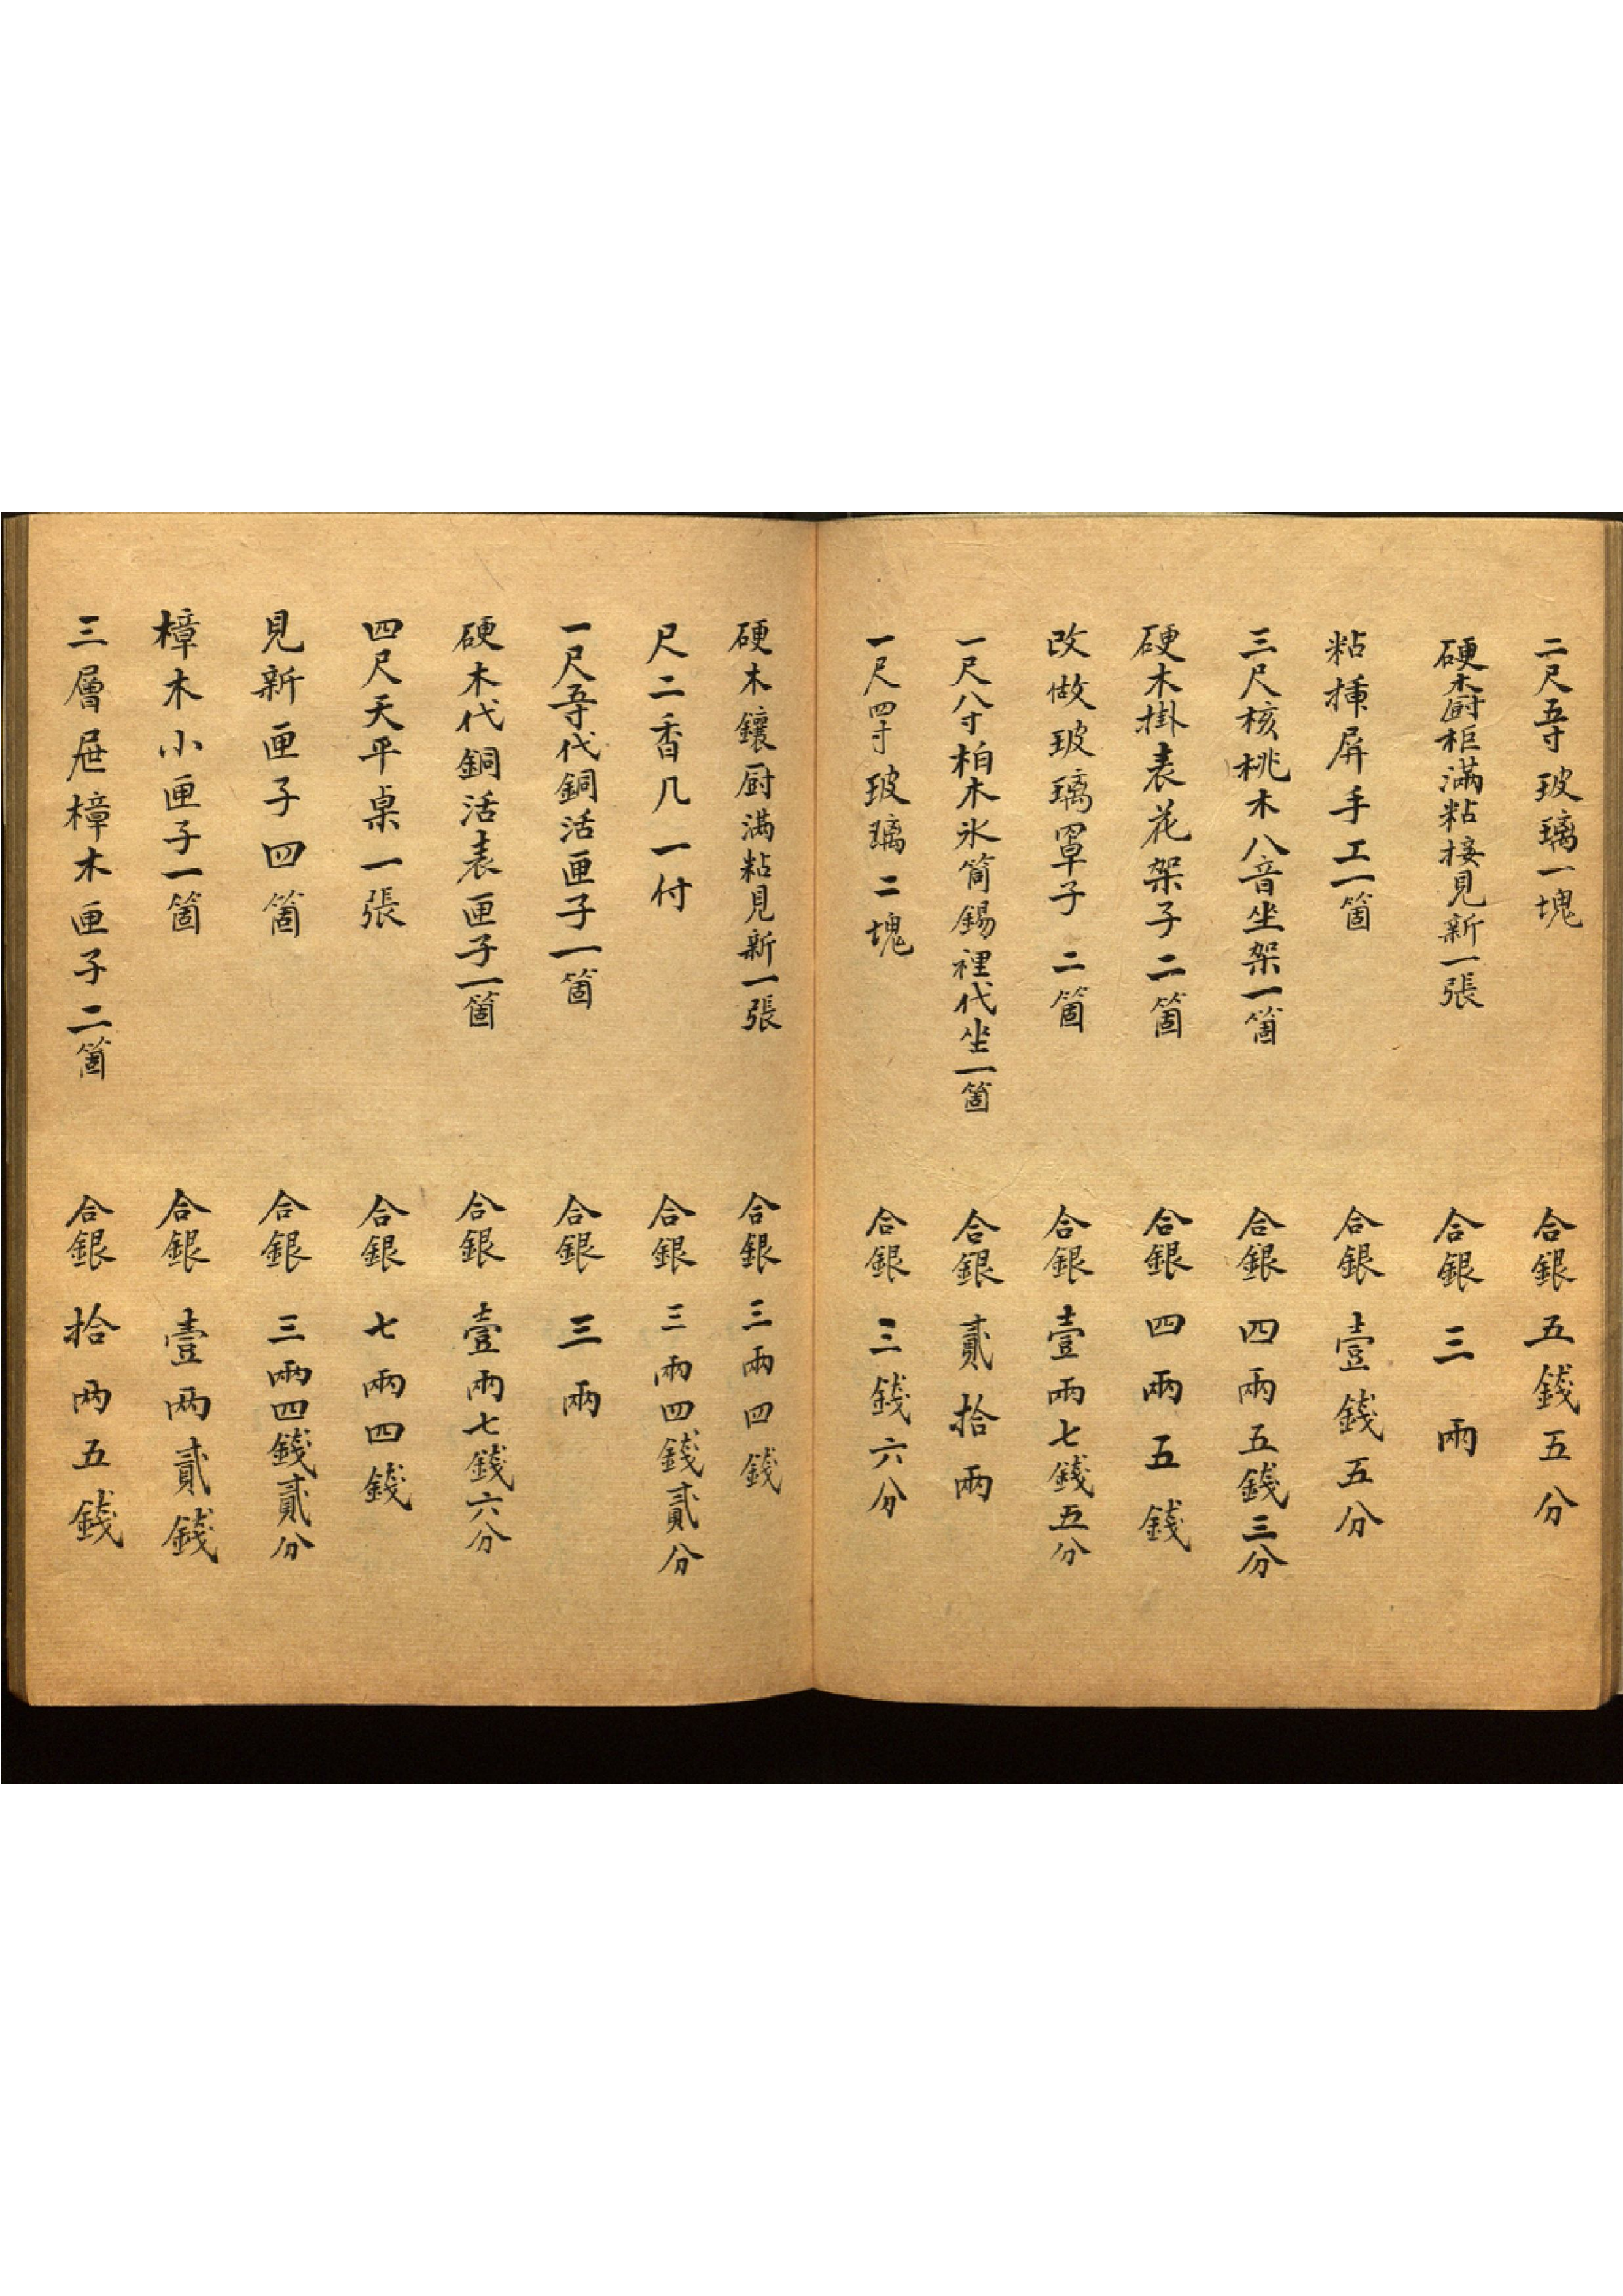 二尺五寸玻璃一塊 合銀五錢五分
硬木廚柜滿粘接見新一張 合銀三兩
粘揷屏手工一箇 合銀壹錢五分
三尺核桃木八音坐架一箇 合銀四兩五錢三分
硬木掛表花架子二箇 合銀四兩五錢
改做玻璃罩子二箇 合銀壹兩七錢五分
一尺八寸柏木氷筒錫裡代坐一箇 合銀貳拾兩
一尺四寸玻璃二塊 合銀三錢六分
硬木鑲廚滿粘見新一張 合銀三兩四錢
尺二香几一付 合銀三兩四錢貳分
一尺五寸代銅活匣子一箇 合銀三兩
硬木代銅活表匣子一箇 合銀壹兩七錢六分
四尺天平桌一張 合銀七兩四錢
見新匣子四箇 合銀三兩四錢貳分
樟木小匣子一箇 合銀壹两貳錢
三層屉樟木匣子二箇 合銀拾两五錢